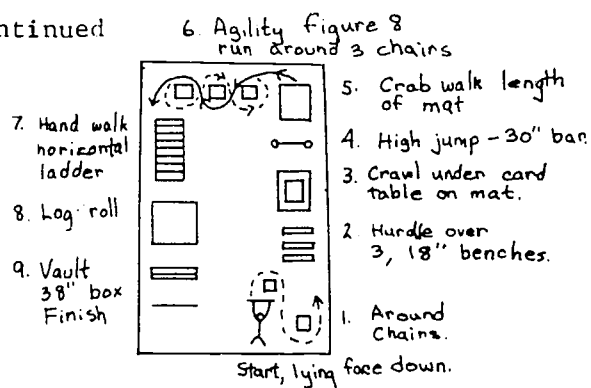 ntinued
6. Agility figure 8
run around 3 chairs
5. Crab walk length
of mat
4. High jump - 30" bar.
3. Crawl under card
table on mat.
2 Hurdle over
3, 18" benches.
1. Around
Chairs.
Start, lying face down.
7. Hand walk
horizontal
ladder
8. Log roll
9. Vault
38" box
Finish